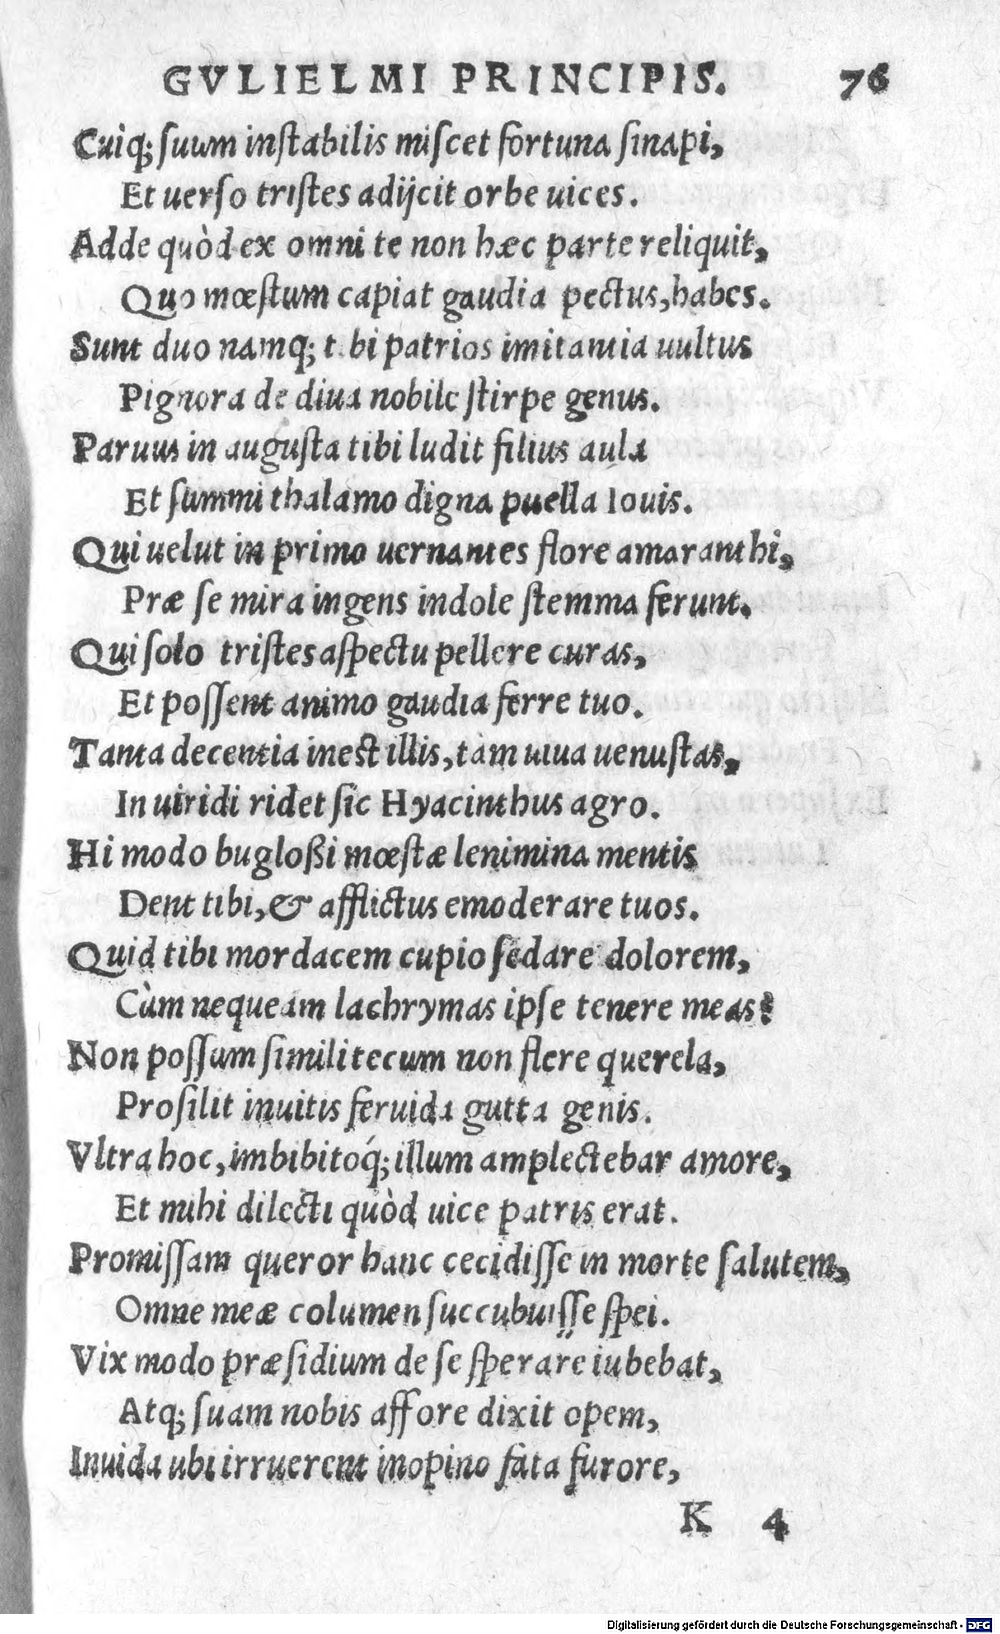 GVLIELMI PRINCIPIS. 76
Cuiq; suum instabilis miscet fortuna sinapi,
Et uerso tristes adijcit orbe uices.
Adde quòd ex omni te non hæc parte reliquit,
Quo mœstum capiat gaudia pectus, habes.
Sunt duo namq; tibi patrios imitantia uultus
Pignora de diua nobile stirpe genus.
Paruus in augusta tibi ludit filius aula
Et summi thalamo digna puella Iouis.
Qui uelut in primo uernantes flore amaranthi,
Præ se mira ingens indole stemma ferunt.
Qui solo tristes aspectu pellere curas,
Et possent animo gaudia ferre tuo.
Tanta decentia inest illis, tam uiua uenustas,
In uiridi ridet sic Hyacinthus agro.
Hi modo buglossi mœstæ lenimina mentis
Dent tibi, & afflictus emoderare tuos.
Quid tibi mordacem cupio sedare dolorem,
Cùm nequeam lachrymas ipse tenere meas?
Non possum simili tecum non flere querela,
Prosilit inuitis feruida gutta genis.
Vltra hoc, imbibitoq́; illum amplectebar amore,
Et mihi dilecti quòd uice patris erat.
Promissam queror hanc cecidisse in morte salutem,
Omne meæ columen succubuisse spei.
Vix modo præsidium de se sperare iubebat,
Atq; suam nobis affore dixit opem,
Inuida ubi irruerent inopino fata furore,
K 4
Digitalisierung gefördert durch die Deutsche Forschungsgemeinschaft - DFG